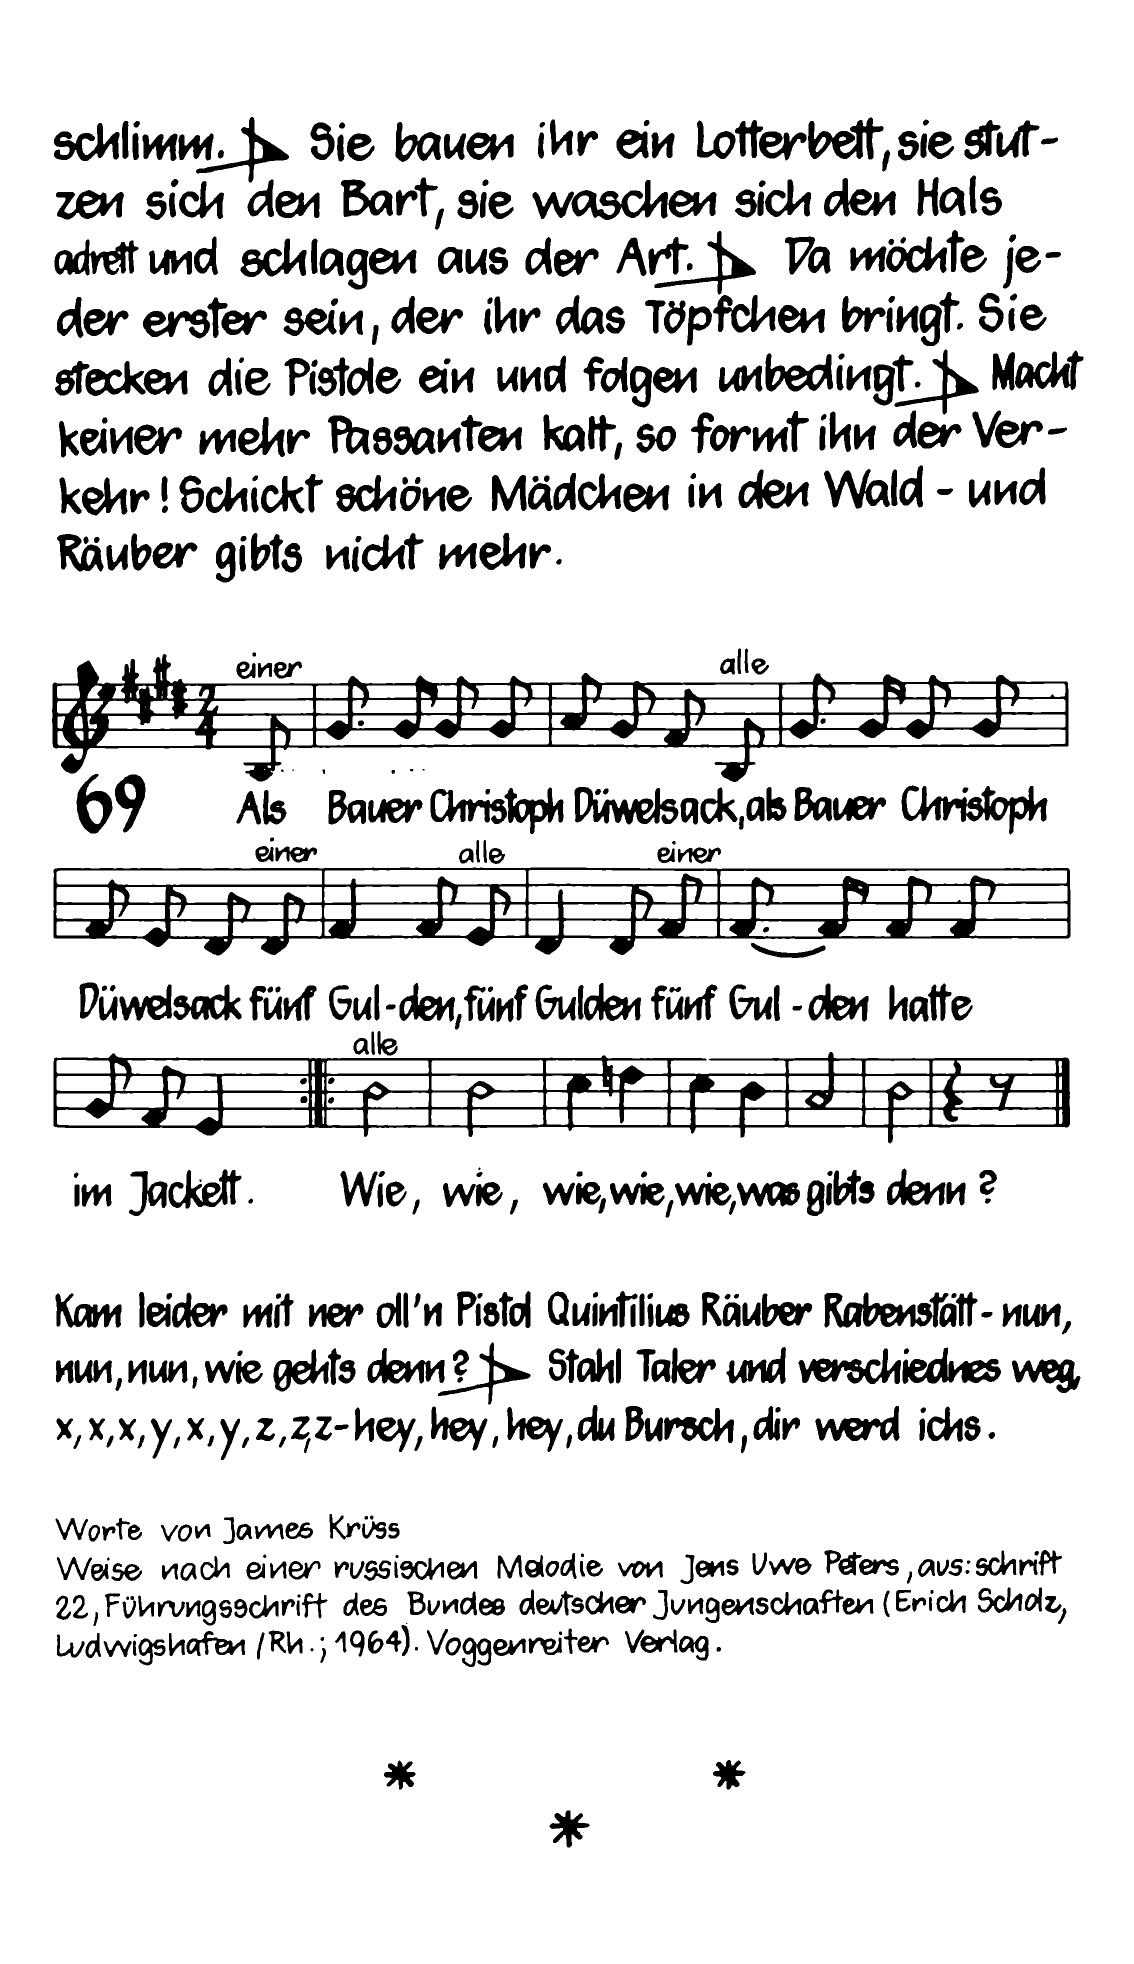 schlimm. Sie bauen ihr ein Lotterbett, sie stut-
zen sich den Bart, sie waschen sich den Hals
adrett und schlagen aus der Art. Da möchte je-
der erster sein, der ihr das Töpfchen bringt. Sie
stecken die Pistole ein und folgen unbedingt. Macht
keiner mehr Passanten kalt, so formt ihn der Ver-
kehr! Schickt schöne Mädchen in den Wald - und
Räuber gibts nicht mehr.
einer alle
2/4
69 Als Bauer Christoph Düwelsack, als Bauer Christoph
einer alle einer
Düwelsack fünf Gul-den, fünf Gulden fünf Gul - den hatte
alle
im Jackett. Wie, wie, wie, wie, wie, was gibts denn?
Kam leider mit ner oll'n Pistol Quintilius Räuber Rabenstätt - nun,
nun, nun, wie gehts denn? Stahl Taler und verschiednes weg,
x, x, x, y, x, y, z, z, z - hey, hey, hey, du Bursch, dir werd ichs.
Worte von James Krüss
Weise nach einer russischen Melodie von Jens Uwe Peters, aus: schrift
22, Führungsschrift des Bundes deutscher Jungenschaften (Erich Scholz,
Ludwigshafen /Rh.; 1964). Voggenreiter Verlag.